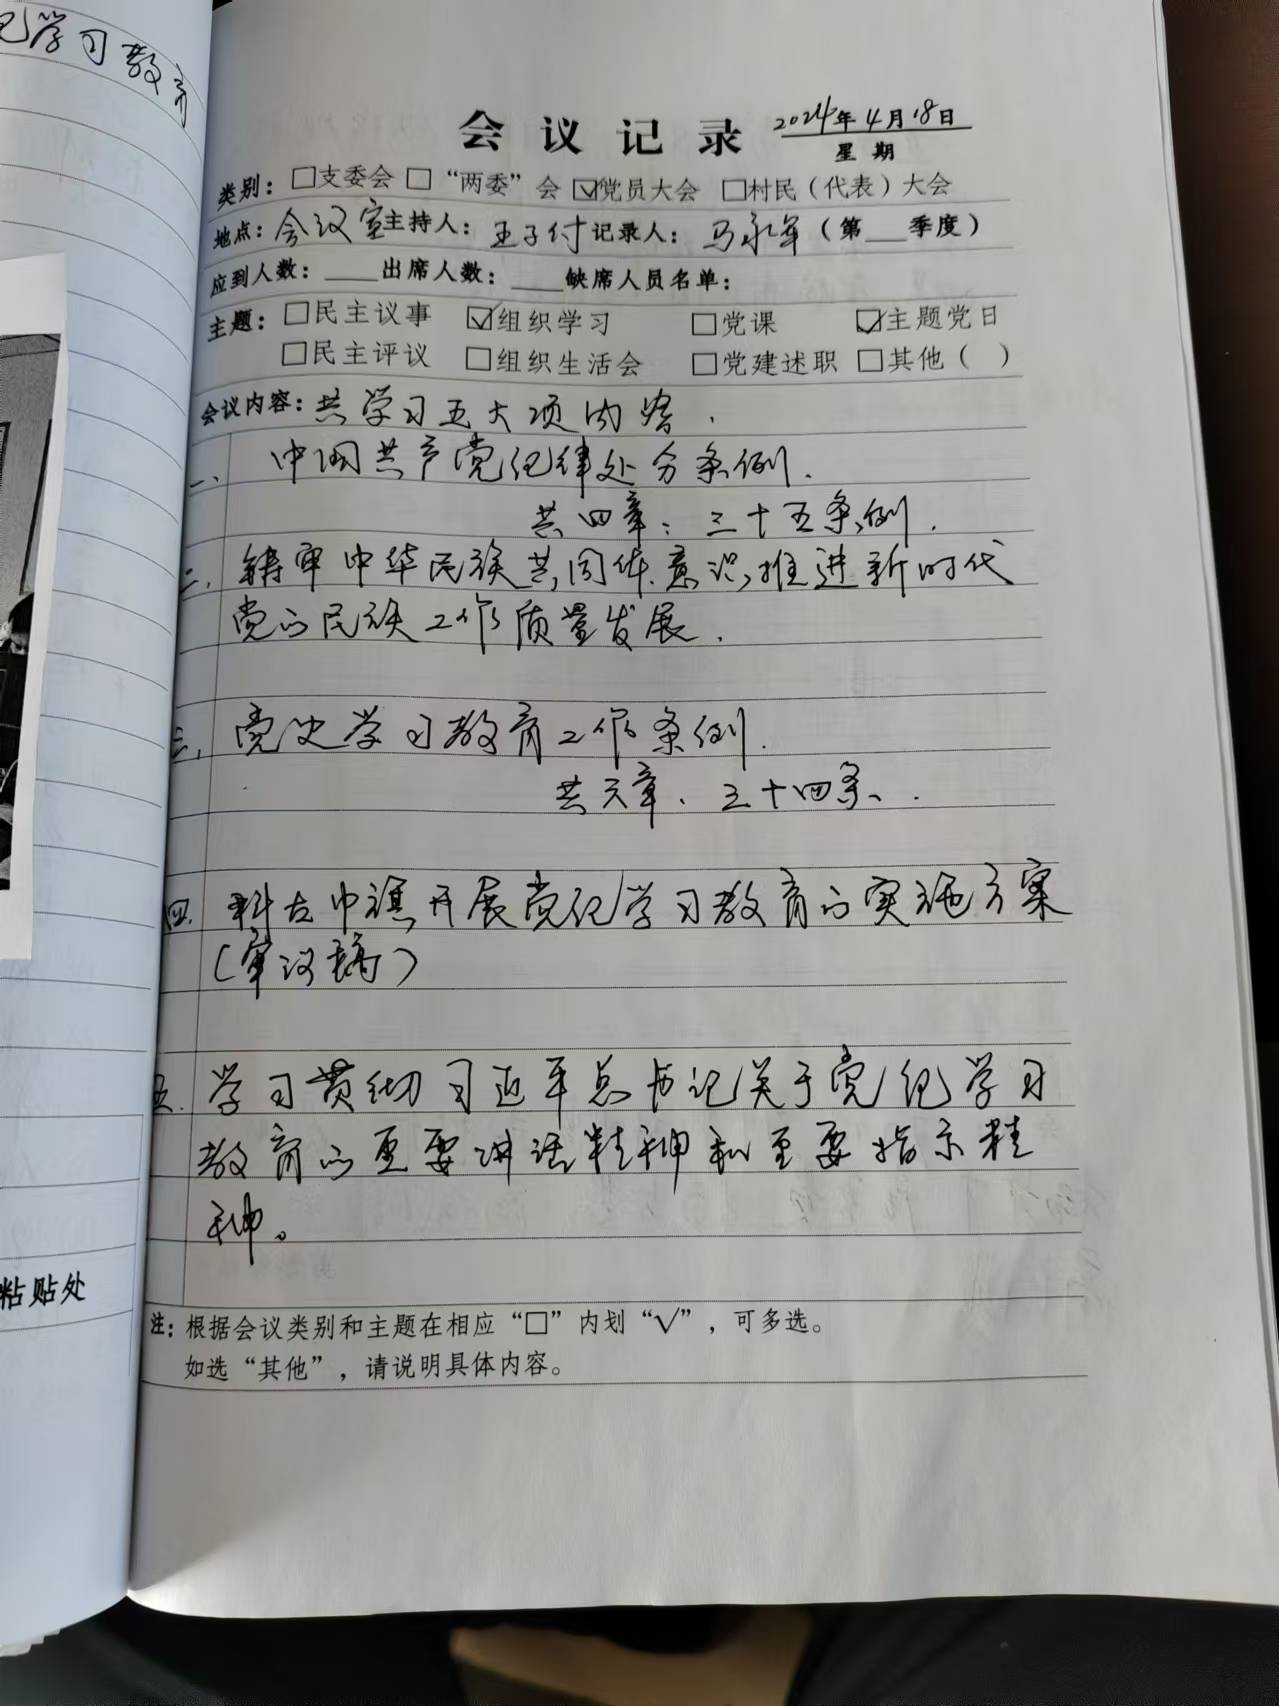 纪学习教育
粘贴处
会议记录 2024年4月18日
星期
类别：□支委会 □“两委”会 ☑党员大会 □村民（代表）大会
地点：会议室 主持人：王子付 记录人：马永军（第__季度）
应到人数：____出席人数：____缺席人员名单：
主题：□民主议事 ☑组织学习 □党课 ☑主题党日
□民主评议 □组织生活会 □党建述职 □其他（ ）
会议内容：共学习五大项内容.
一、中国共产党纪律处分条例.
共四章：三十五条例.
二、铸牢中华民族共同体意识,推进新时代
党的民族工作质量发展.
三、党史学习教育工作条例.
共六章、三十四条、.
四.科左中旗开展党纪学习教育的实施方案
（审议稿）
五.学习贯彻习近平总书记关于党纪学习
教育的重要讲话精神和重要指示精
神。
注：根据会议类别和主题在相应“□”内划“√”，可多选。
如选“其他”，请说明具体内容。